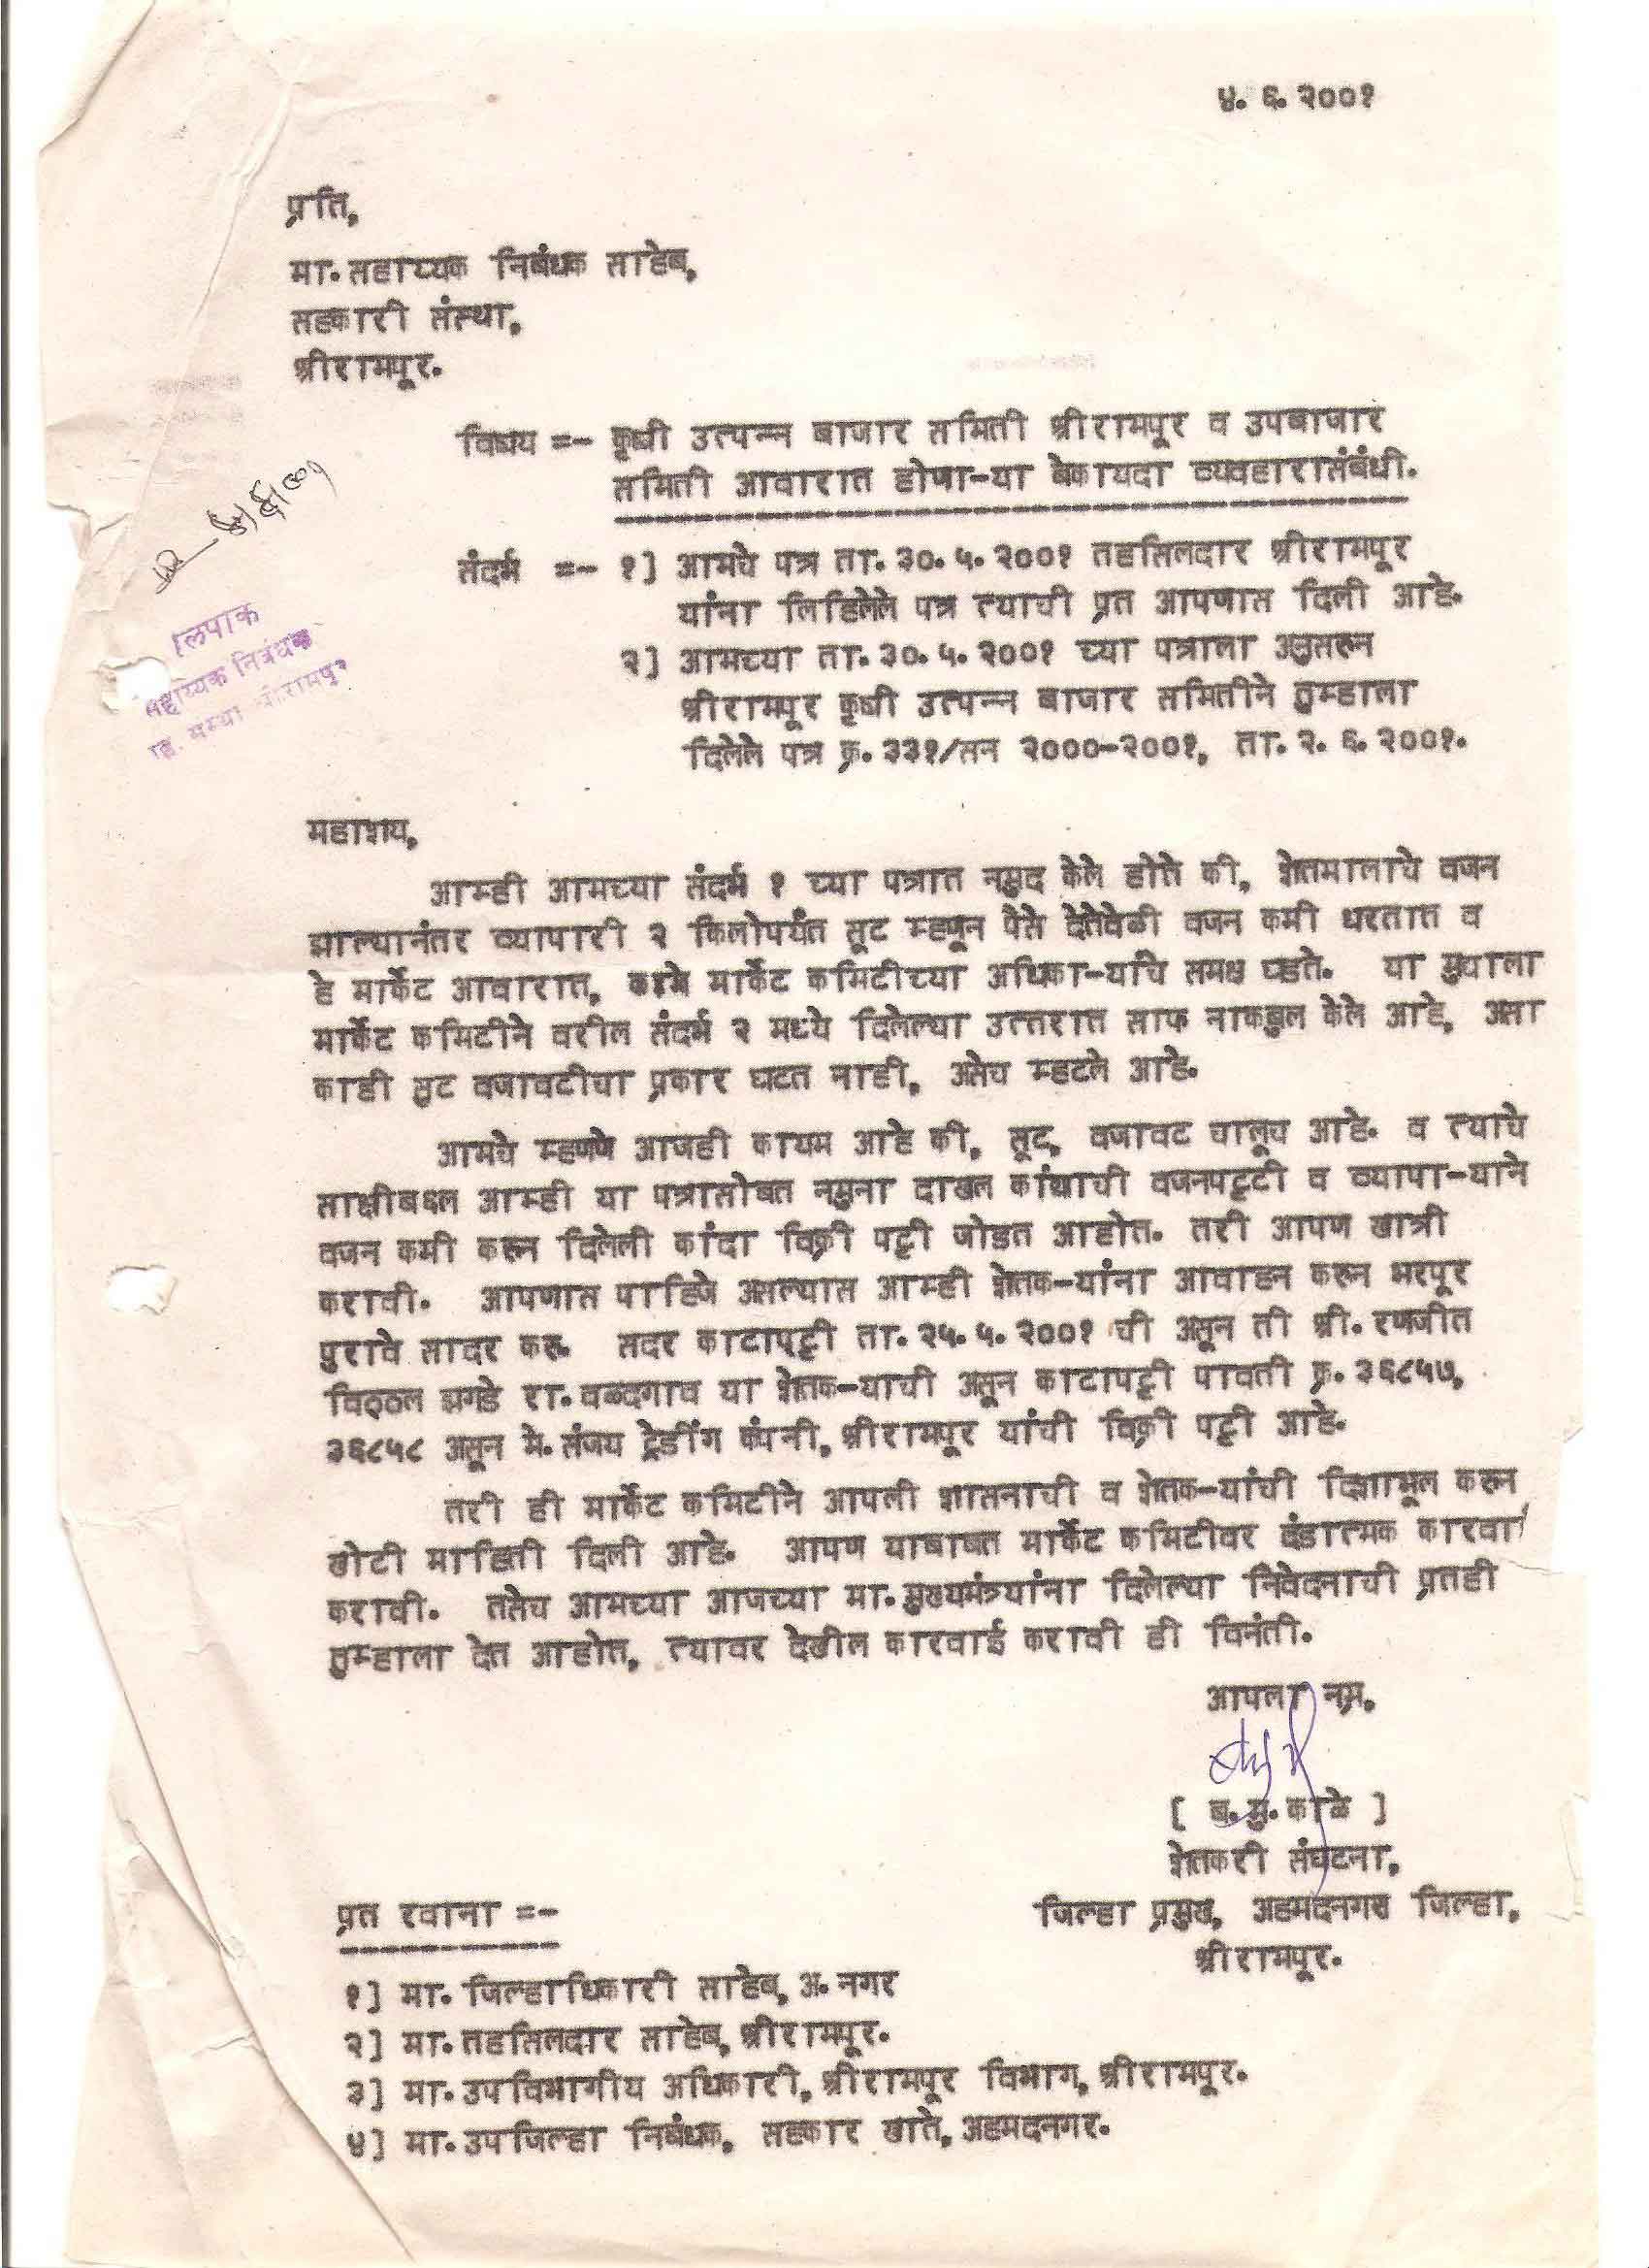 ४. ६. २००१
प्रति,
मा. सहाय्यक निबंधक साहेब,
सहकारी संस्था,
श्रीरामपूर.
विषय =- कृषी उत्पन्न बाजार समिती श्रीरामपूर व उपबाजार
समिती आवारात होणा-या बेकायदा व्यवहारासंबंधी.
संदर्भ =- १] आमचे पत्र ता. ३०. ५. २००१ तहसिलदार श्रीरामपूर
यांना लिहिलेले पत्र त्याची प्रत आपणास दिली आहे.
२] आमच्या ता. ३०. ५. २००१ च्या पत्राला अनुसरुन
श्रीरामपूर कृषी उत्पन्न बाजार समितीने तुम्हाला
दिलेले पत्र क्र. ३३१/सन २०००-२००१, ता. २. ६. २००१.
लिपीक
सहाय्यक निबंधक
महाशय,
आम्ही आमच्या संदर्भ १ च्या पत्रात नमुद केले होते की, शेतमालाचे वजन
झाल्यानंतर व्यापारी २ किलोपर्यंत सूट म्हणून पैसे देतेवेळी वजन कमी धरतात व
हे मार्केट आवारात, मार्केट कमिटीच्या अधिका-यांचे समक्ष घडते. या मुद्याला
मार्केट कमिटीने वरील संदर्भ २ मध्ये दिलेल्या उत्तरात साफ नाकबुल केले आहे, असा
काही सुट वजावटीचा प्रकार घटत नाही, असेच म्हटले आहे.
आमचे म्हणणे आजही कायम आहे की, सूट, वजावट चालूच आहे. व त्याचे
साक्षीबद्दल आम्ही या पत्रासोबत नमुना दाखल कांद्याची वजनपट्टी व व्यापा-याने
वजन कमी करुन दिलेली कांदा विक्री पट्टी जोडत आहोत. तरी आपण खात्री
करावी. आपणास पाहिजे असल्यास आम्ही शेतक-यांना आवाहन करुन भरपूर
पुरावे सादर करु. सदर काटापट्टी ता. २५. ५. २००१ ची असून ती श्री. रणजीत
विठ्ठल झगडे रा. वळदगाव या शेतक-याची असून काटापट्टी पावती क्र. ३६८५७,
३६८५८ असून मे. संजय ट्रेडींग कंपनी, श्रीरामपूर यांची विक्री पट्टी आहे.
तरी ही मार्केट कमिटीने आपली शासनाची व शेतक-यांची दिशाभूल करुन
खोटी माहिती दिली आहे. आपण याबाबत मार्केट कमिटीवर दंडात्मक कारवा
करावी. तसेच आमच्या आजच्या मा. मुख्यमंत्र्यांना दिलेल्या निवेदनाची प्रतही
तुम्हाला देत आहोत, त्यावर देखील कारवाई करावी ही विनंती.
आपला नम्र,
[ ब. मु. काळे ]
शेतकरी संघटना,
जिल्हा प्रमुख, अहमदनगर जिल्हा,
श्रीरामपूर.
प्रत रवाना =-
१] मा. जिल्हाधिकारी साहेब, अ. नगर
२] मा. तहसिलदार साहेब, श्रीरामपूर.
३] मा. उपविभागीय अधिकारी, श्रीरामपूर विभाग, श्रीरामपूर.
४] मा. उपजिल्हा निबंधक, सहकार खाते, अहमदनगर.